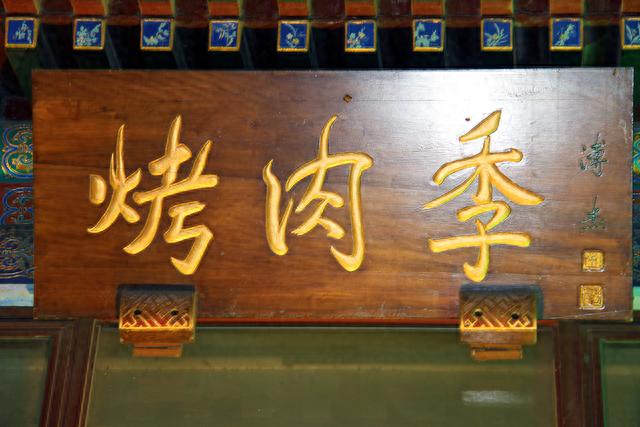 烤肉季
溥杰